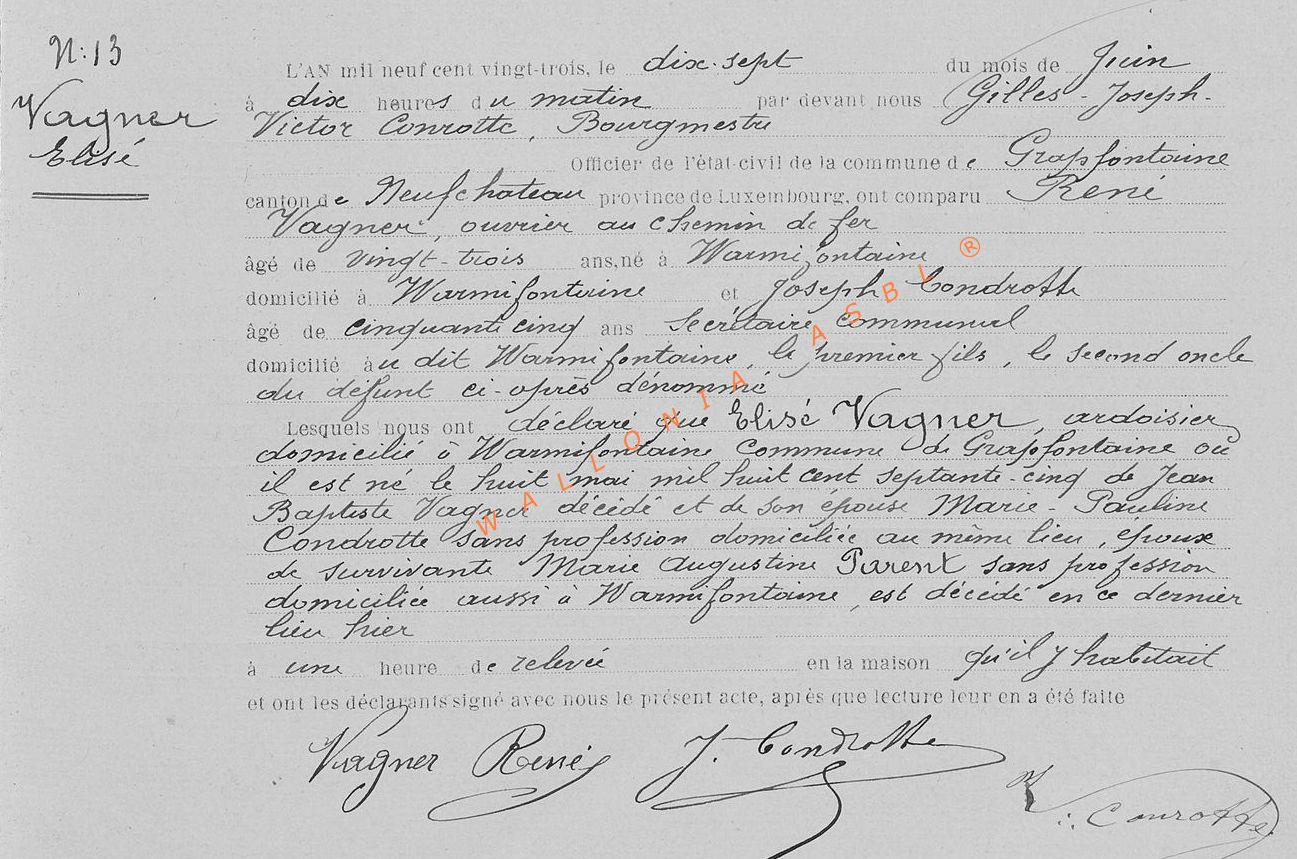 N: 13
Vagner
Elisé
L'AN mil neuf cent vingt-trois, le dix-sept du mois de Juin
à dix heures du matin par devant nous Gilles-Joseph-
Victor Conrotte, Bourgmestre
Officier de l'état-civil de la commune de Grapfontaine
canton de Neufchateau province de Luxembourg, ont comparu René
Vagner, ouvrier au chemin de fer
âgé de vingt-trois ans, né à Warmifontaine
domicilié à Warmifontaine et Joseph Condrotte
âgé de cinquante cinq ans secrétaire communal
domicilié au dit Warmifontaine, le premier fils, le second oncle
du défunt ci-après dénommé
Lesquels nous ont déclaré que Elisé Vagner, ardoisier
domicilié à Warmifontaine commune de Grapfontaine où
il est né le huit mai mil huit cent septante-cinq de Jean
Baptiste Vagner décédé et de son épouse Marie-Pauline
Condrotte sans profession domiciliée au même lieu, époux
de survivante Marie Augustine Parent sans profession
domiciliée aussi à Warmifontaine, est décédé en ce dernier
lieu hier
à une heure de relevée en la maison qu'il y habitait
et ont les déclarants signé avec nous le présent acte, après que lecture leur en a été faite
Vagner René J. Condrotte
V. Conrotte
WALLONIA ASBL ®